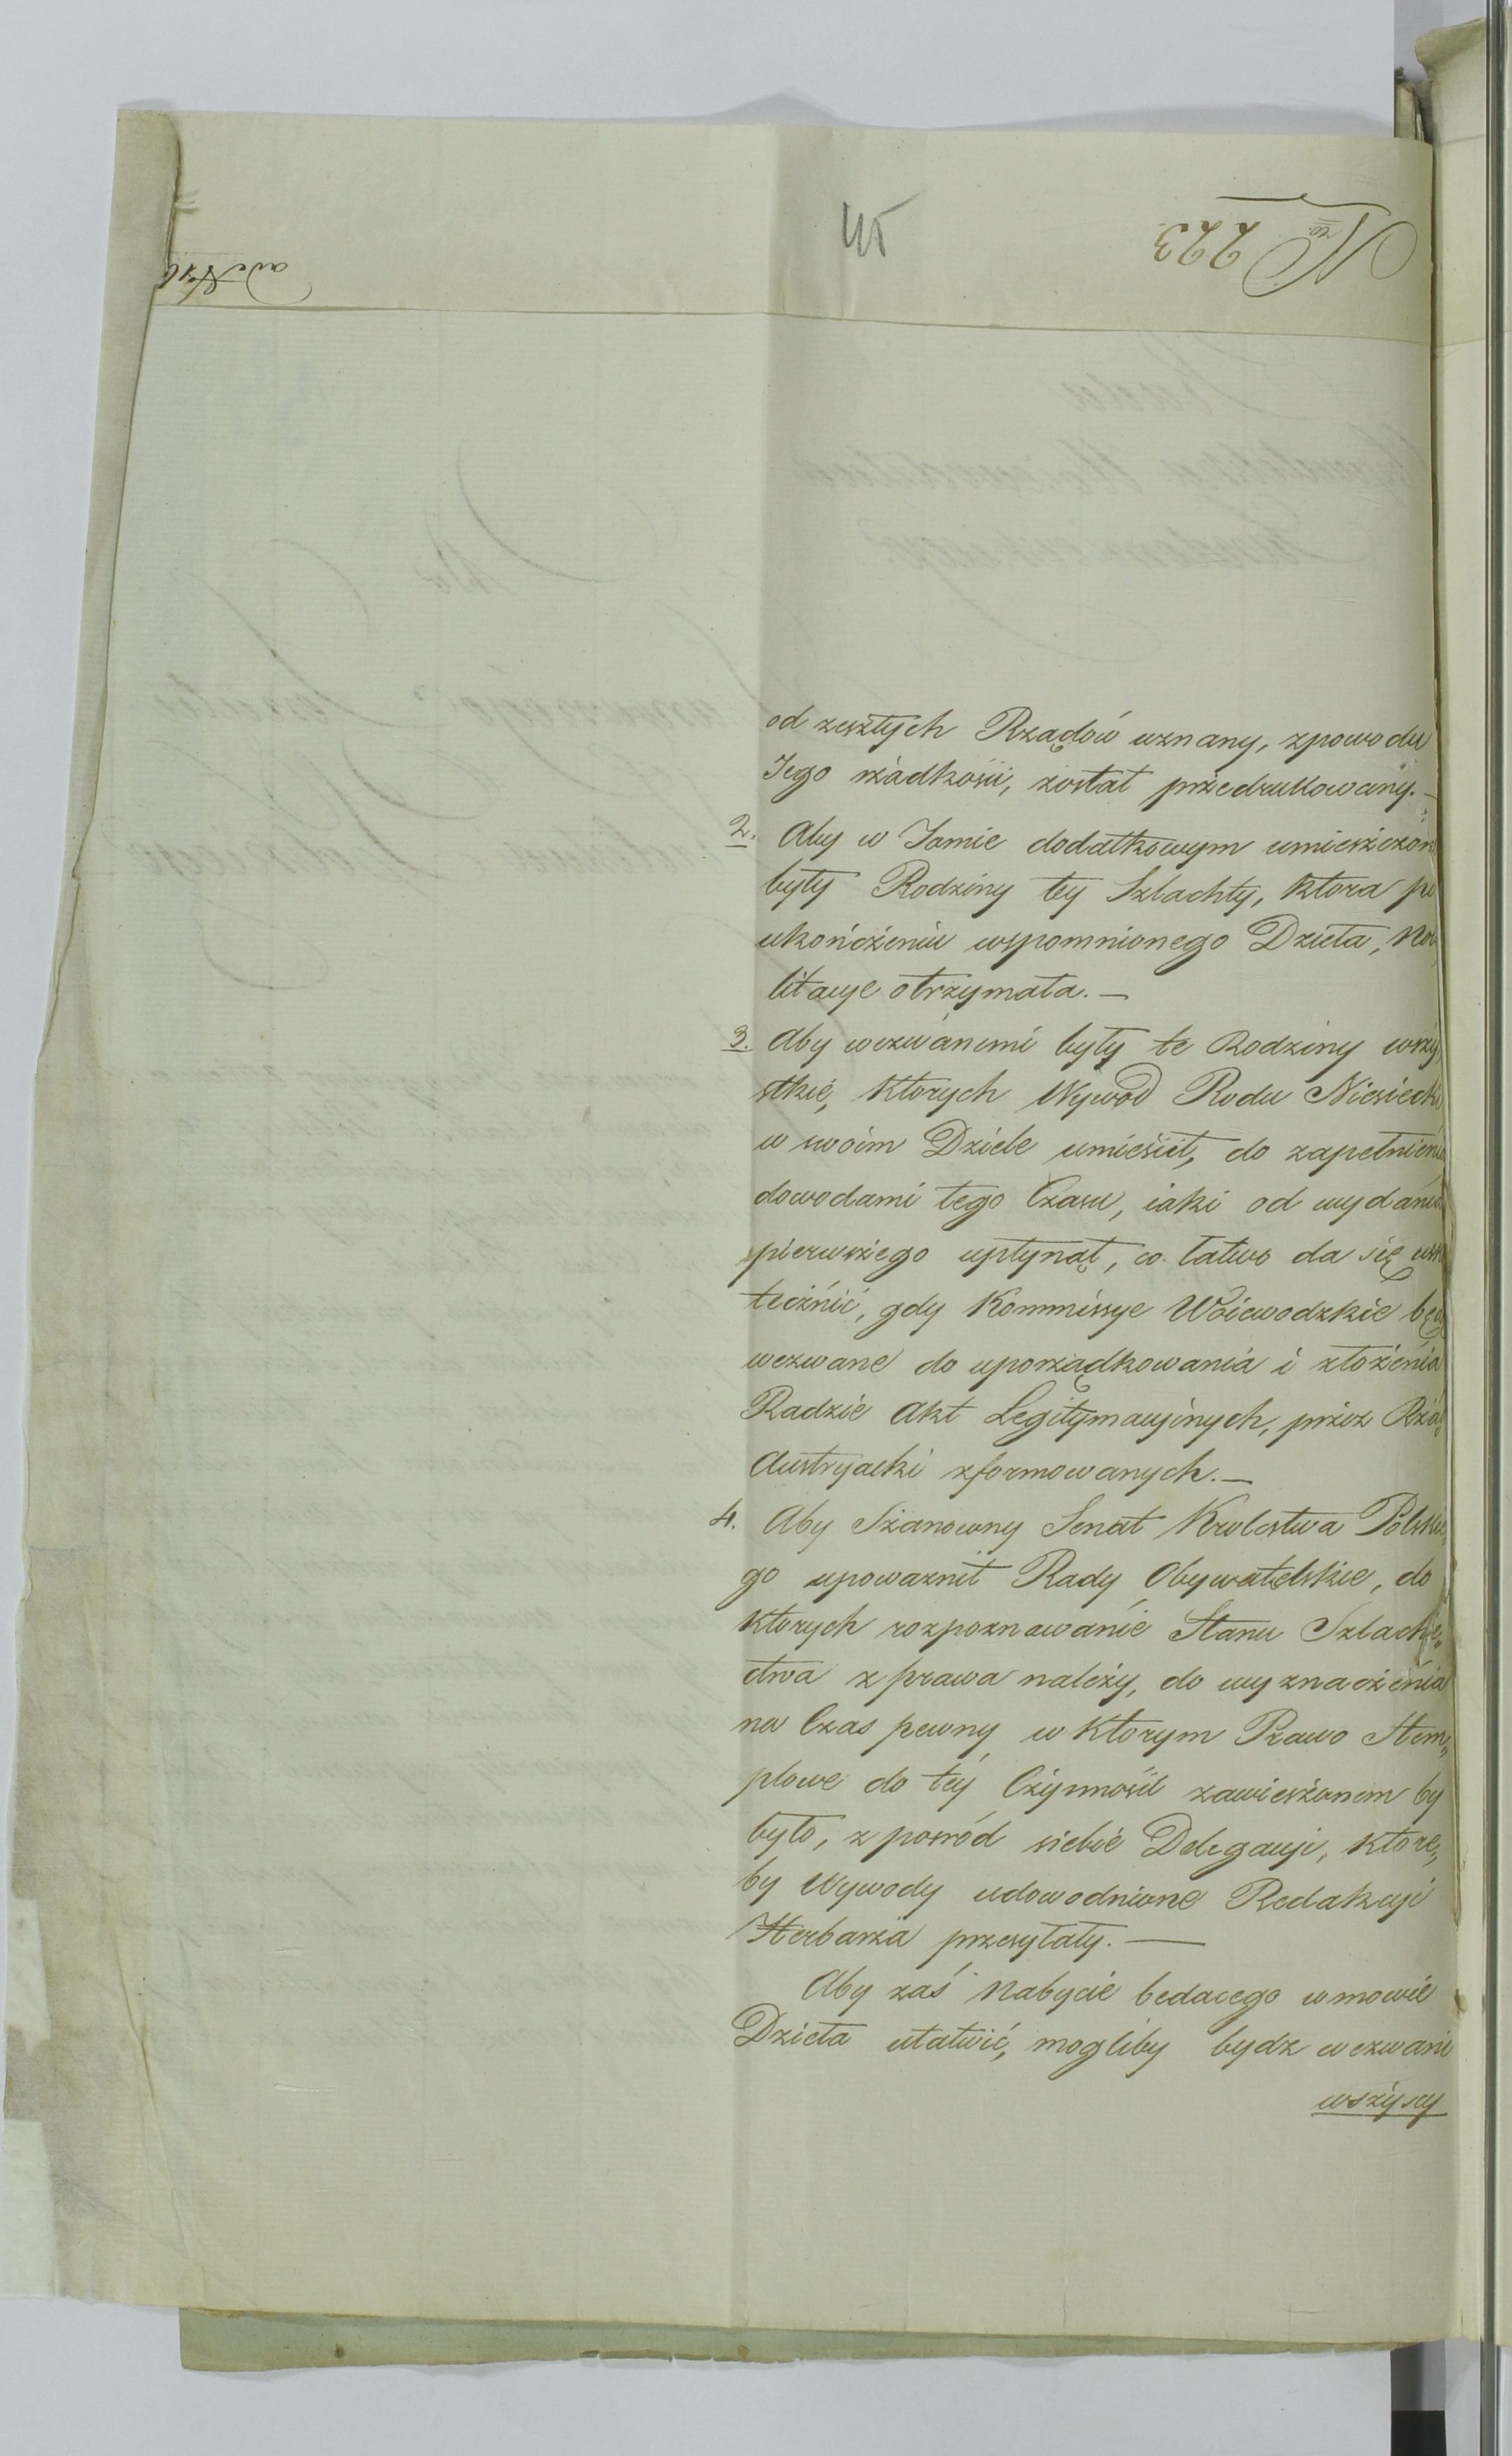 Nro 223
45
ad N
od zeszłych Rządów uznany, zpowodu
Jego rżadkości, został przedrukowany. —
2. Aby w Tomie dodatkowym umieszczon
były Rodziny tey Szlachty, ktora po
ukończeniu wspomnionego Dzieła, No„
litacye otrzymała. —
3. Aby wezwanemi były te Rodziny wszy„
stkie, ktorych Wywod Rodu Niesiecki
w swoim Dziele umieścił, do zapełnienia
dowodami tego Czasu, iaki od wydania
pierwszego upłynął, co łatwo da się usku
tecznić, gdy Kommissye Woiewodzkie będą
wezwane do uporządkowania i złożenia
Radzie Akt Legitymacyinych, przez Rząd
Austryacki zformowanych. —
4. Aby Szanowny Senat Krolestwa Polskie„
go upoważnił Rady Obywatelskie, do
ktorych rozpoznawanie Stanu Szlache„
ctwa z prawa należy, do wyznaczenia
na Czas pewny w ktorym Prawo Stem„
plowe do tey Czynności zawieszonem by
było, z pośród siebie Delegacyi, ktore„
by Wywody udowodnione Redakcyi
Herbarza przesyłały. —
Aby zaś nabycie bedacego w mowie
Dzieła ułatwić, mogliby bydz wezwani
wszyscy